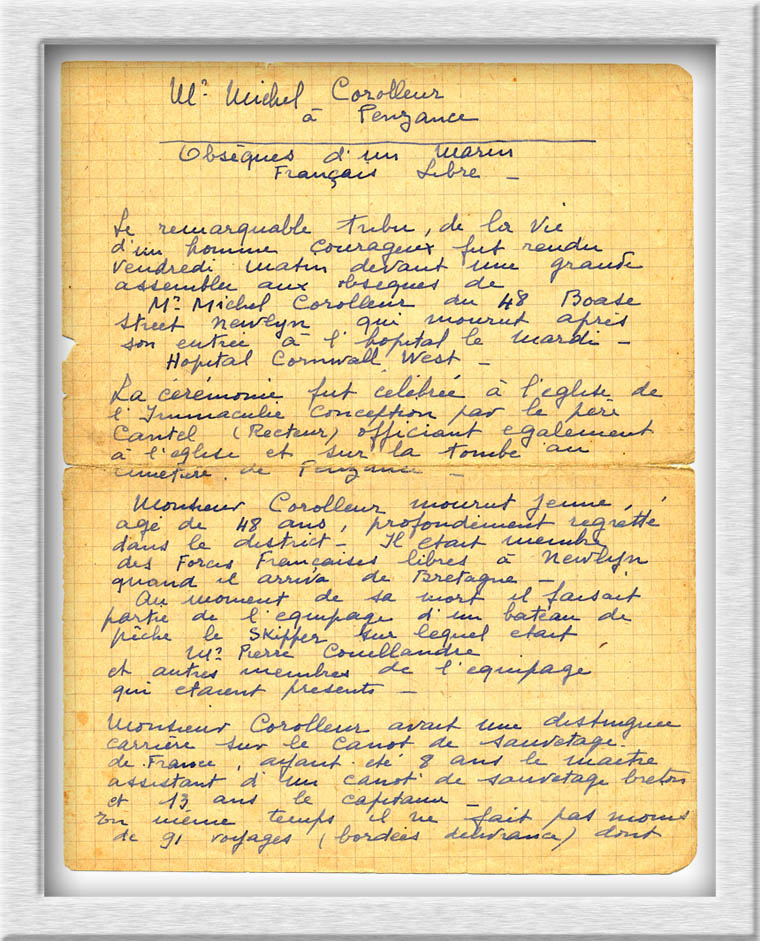 Mr Michel Corolleur
à Penzance
Obsèques d'un Marin
Français Libre _
Le remarquable tribu, de la vie
d'un homme courageux fut rendu
vendredi matin devant une grande
assemblée aux obsèques de
Mr Michel Corolleur au 48 Boase
Street Newlyn qui mourut après
son entrée à l'hopital le mardi _
Hopital Cornwall West _
La cérémonie fut célébrée à l'eglise de
l'Immaculée Conception par le père
Cantel (Recteur) officiant egalement
à l'eglise et sur la tombe au
cimetière de Penzance _
Monsieur Corolleur mourut jeune,
agé de 48 ans, profondement regretté
dans le district _ Il etait membre
des Forces Françaises libres à Newlyn
quand il arriva de Bretagne _
Au moment de sa mort il faisait
partie de l'equipage d'un bateau de
pêche le Skipper sur lequel etait
Mr Pierre Couillandre
et autres membres de l'equipage
qui etaient présents _
Monsieur Corolleur avait une distinguée
carrière sur le Canot de sauvetage
de France, ayant été 8 ans le maitre
assistant d'un canot de sauvetage breton
et 13 ans le capitaine _
En même temps il ne fait pas moins
de 91 voyages (bordées délivrance) dont